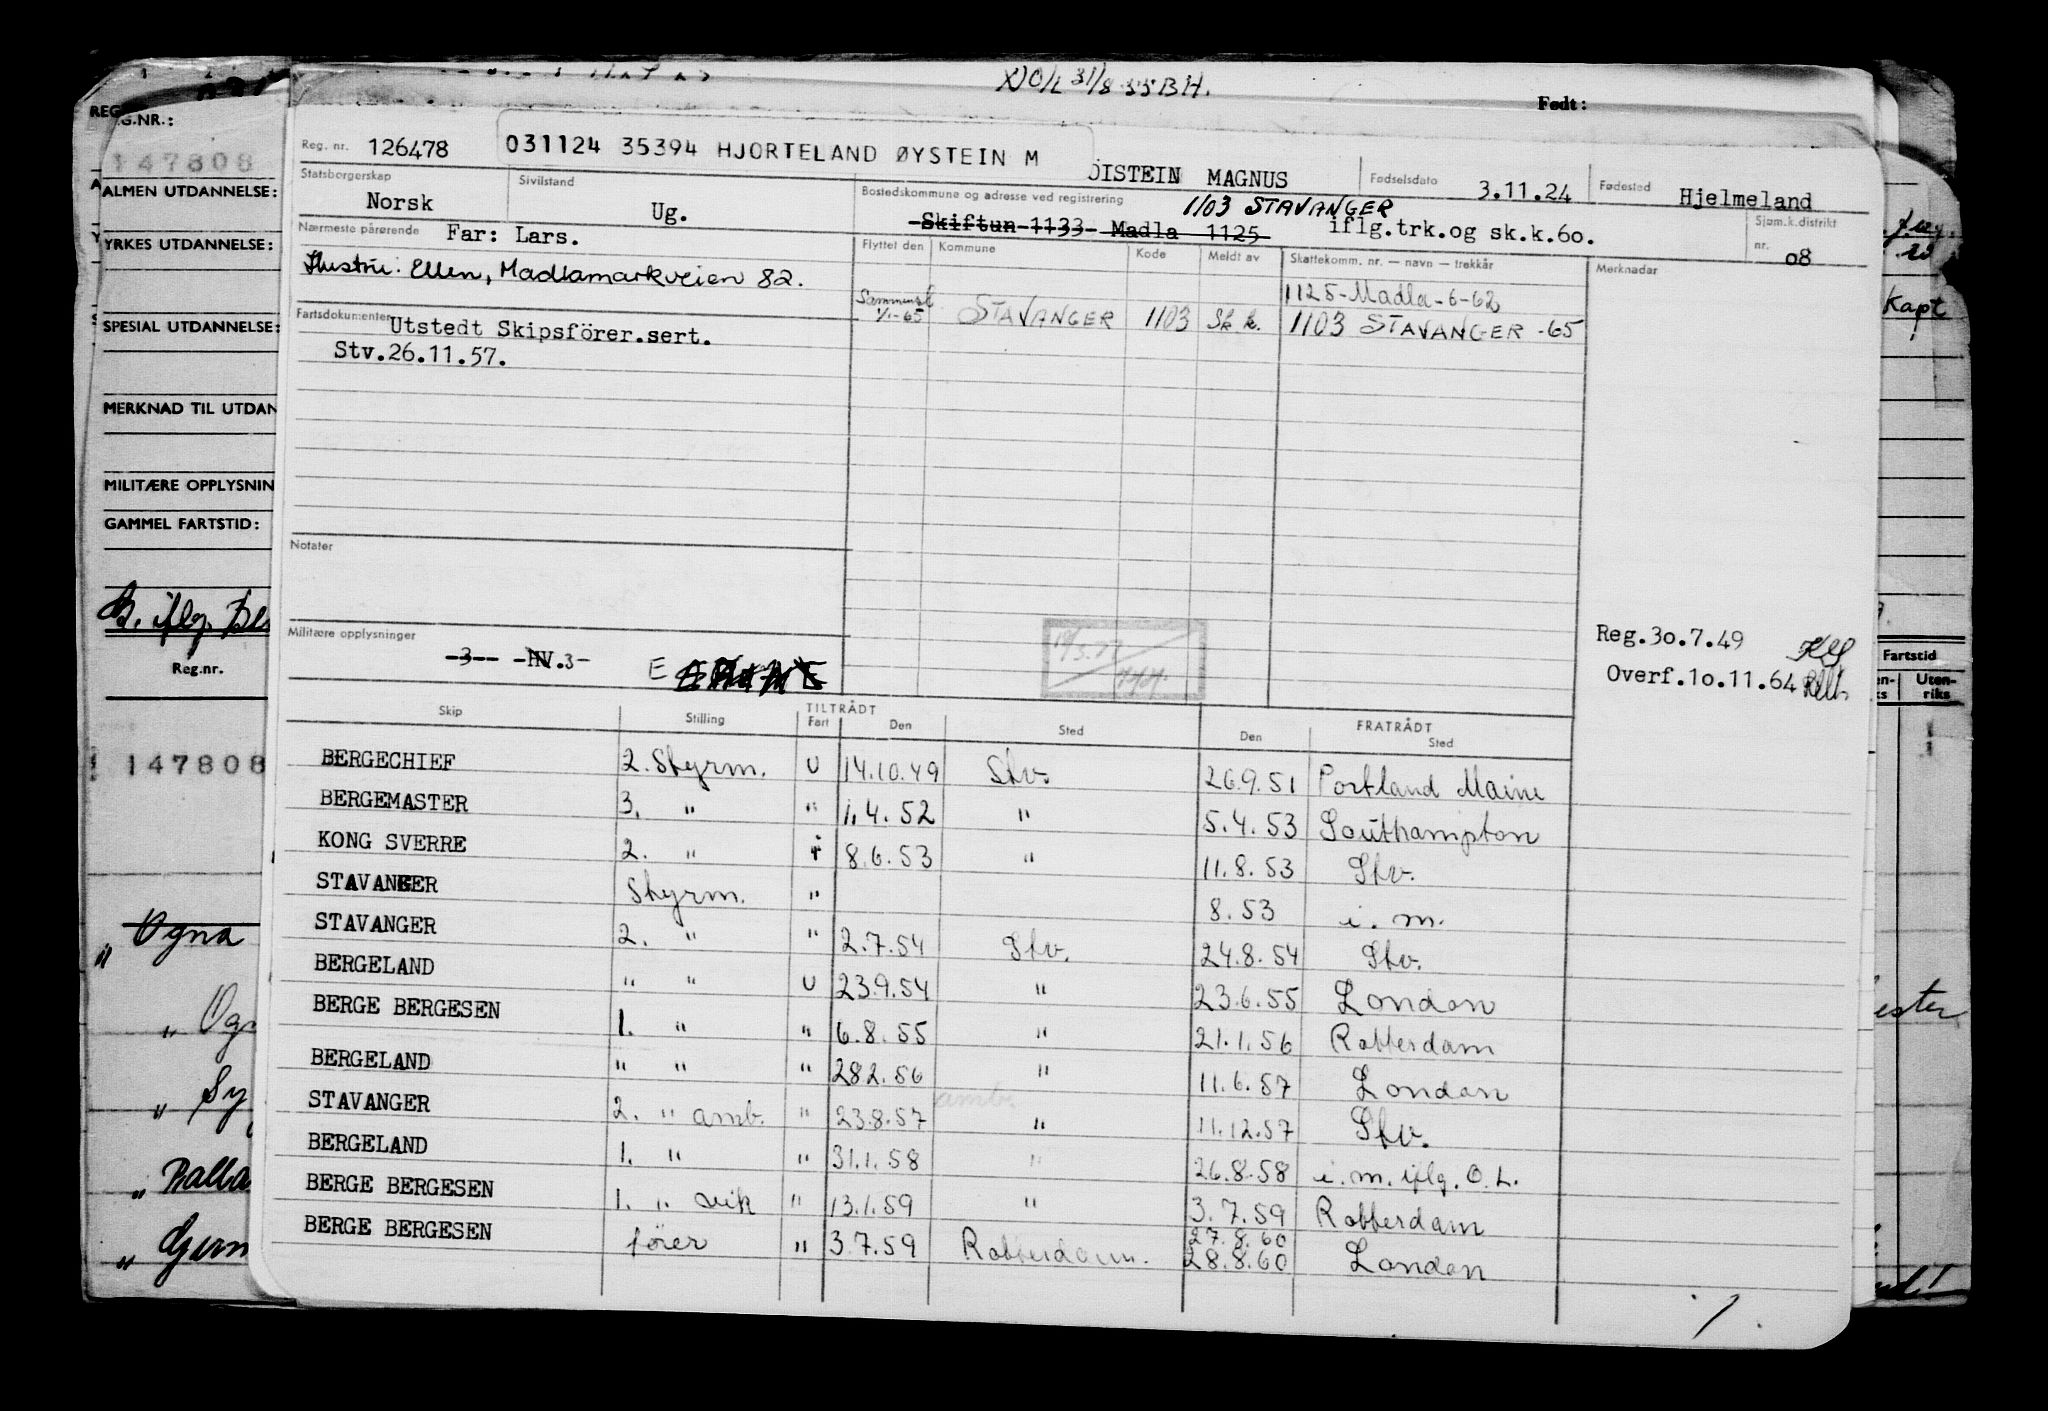 31/8 55 BH.
Født:
REG.NR.:
147808
ALMEN UTDANNELSE:
YRKES UTDANNELSE:
SPESIAL UTDANNELSE:
MERKNAD TIL UTDAN
MILITÆRE OPPLYSNIN
GAMMEL FARTSTID:
Reg.nr.
147808
" Ogna
Reg. nr. 126478 031124 35394 HJORTELAND ØYSTEIN M ÖISTEIN MAGNUS Fødselsdato 3.11.24 Fødested Hjelmeland
Statsborgerskap Norsk Sivilstand Ug. Bostedskommune og adresse ved registrering 1103 STAVANGER
Skiftun 1133 Madla 1125 iflg.trk.og sk.k.60. Sjøm.k.distrikt nr. 08
Nærmeste pårørende Far: Lars.
Hustru: Ellen, Madlamarkveien 82.
Flyttet den Kommune Kode Meldt av Skattekomm. nr. — navn — trekkår Merknader
1125-Madla-6-62
Sammensl. 1/1-65 STAVANGER 1103 Sk.k. 1103 STAVANGER -65
Fartsdokumenter Utstedt Skipsförer.sert.
Stv.26.11.57.
Notater
Militære opplysninger -3-- -HV.3- E
Reg.30.7.49
Overf.10.11.64
Skip Stilling TILTRÅDT Fart Den Sted FRATRÅDT Den Sted
BERGECHIEF 2. Styrm. U 14.10.49 Stv. 26.9.51 Portland Maine
BERGEMASTER 3. " " 1.4.52 " 5.4.53 Southampton
KONG SVERRE 2. " i 8.6.53 " 11.8.53 Stv.
STAVANGER Styrm. " 8.53 i.m.
STAVANGER 2. " " 2.7.54 Stv. 24.8.54 Stv.
BERGELAND " " U 23.9.54 " 23.6.55 London
BERGE BERGESEN 1. " " 6.8.55 " 21.1.56 Rotterdam
BERGELAND " " " 28.2.56 " 11.6.57 London
STAVANGER 2. " amb. " 23.8.57 amb. " 11.12.57 Stv.
BERGELAND 1. " " 31.1.58 " 26.8.58 i.m. iflg. O.L.
BERGE BERGESEN 1. " vik " 13.1.59 " 3.7.59 Rotterdam
BERGE BERGESEN förer " 3.7.59 Rotterdam. 27.8.60 28.8.60 London
Kapt
Fartstid
Uten-
riks